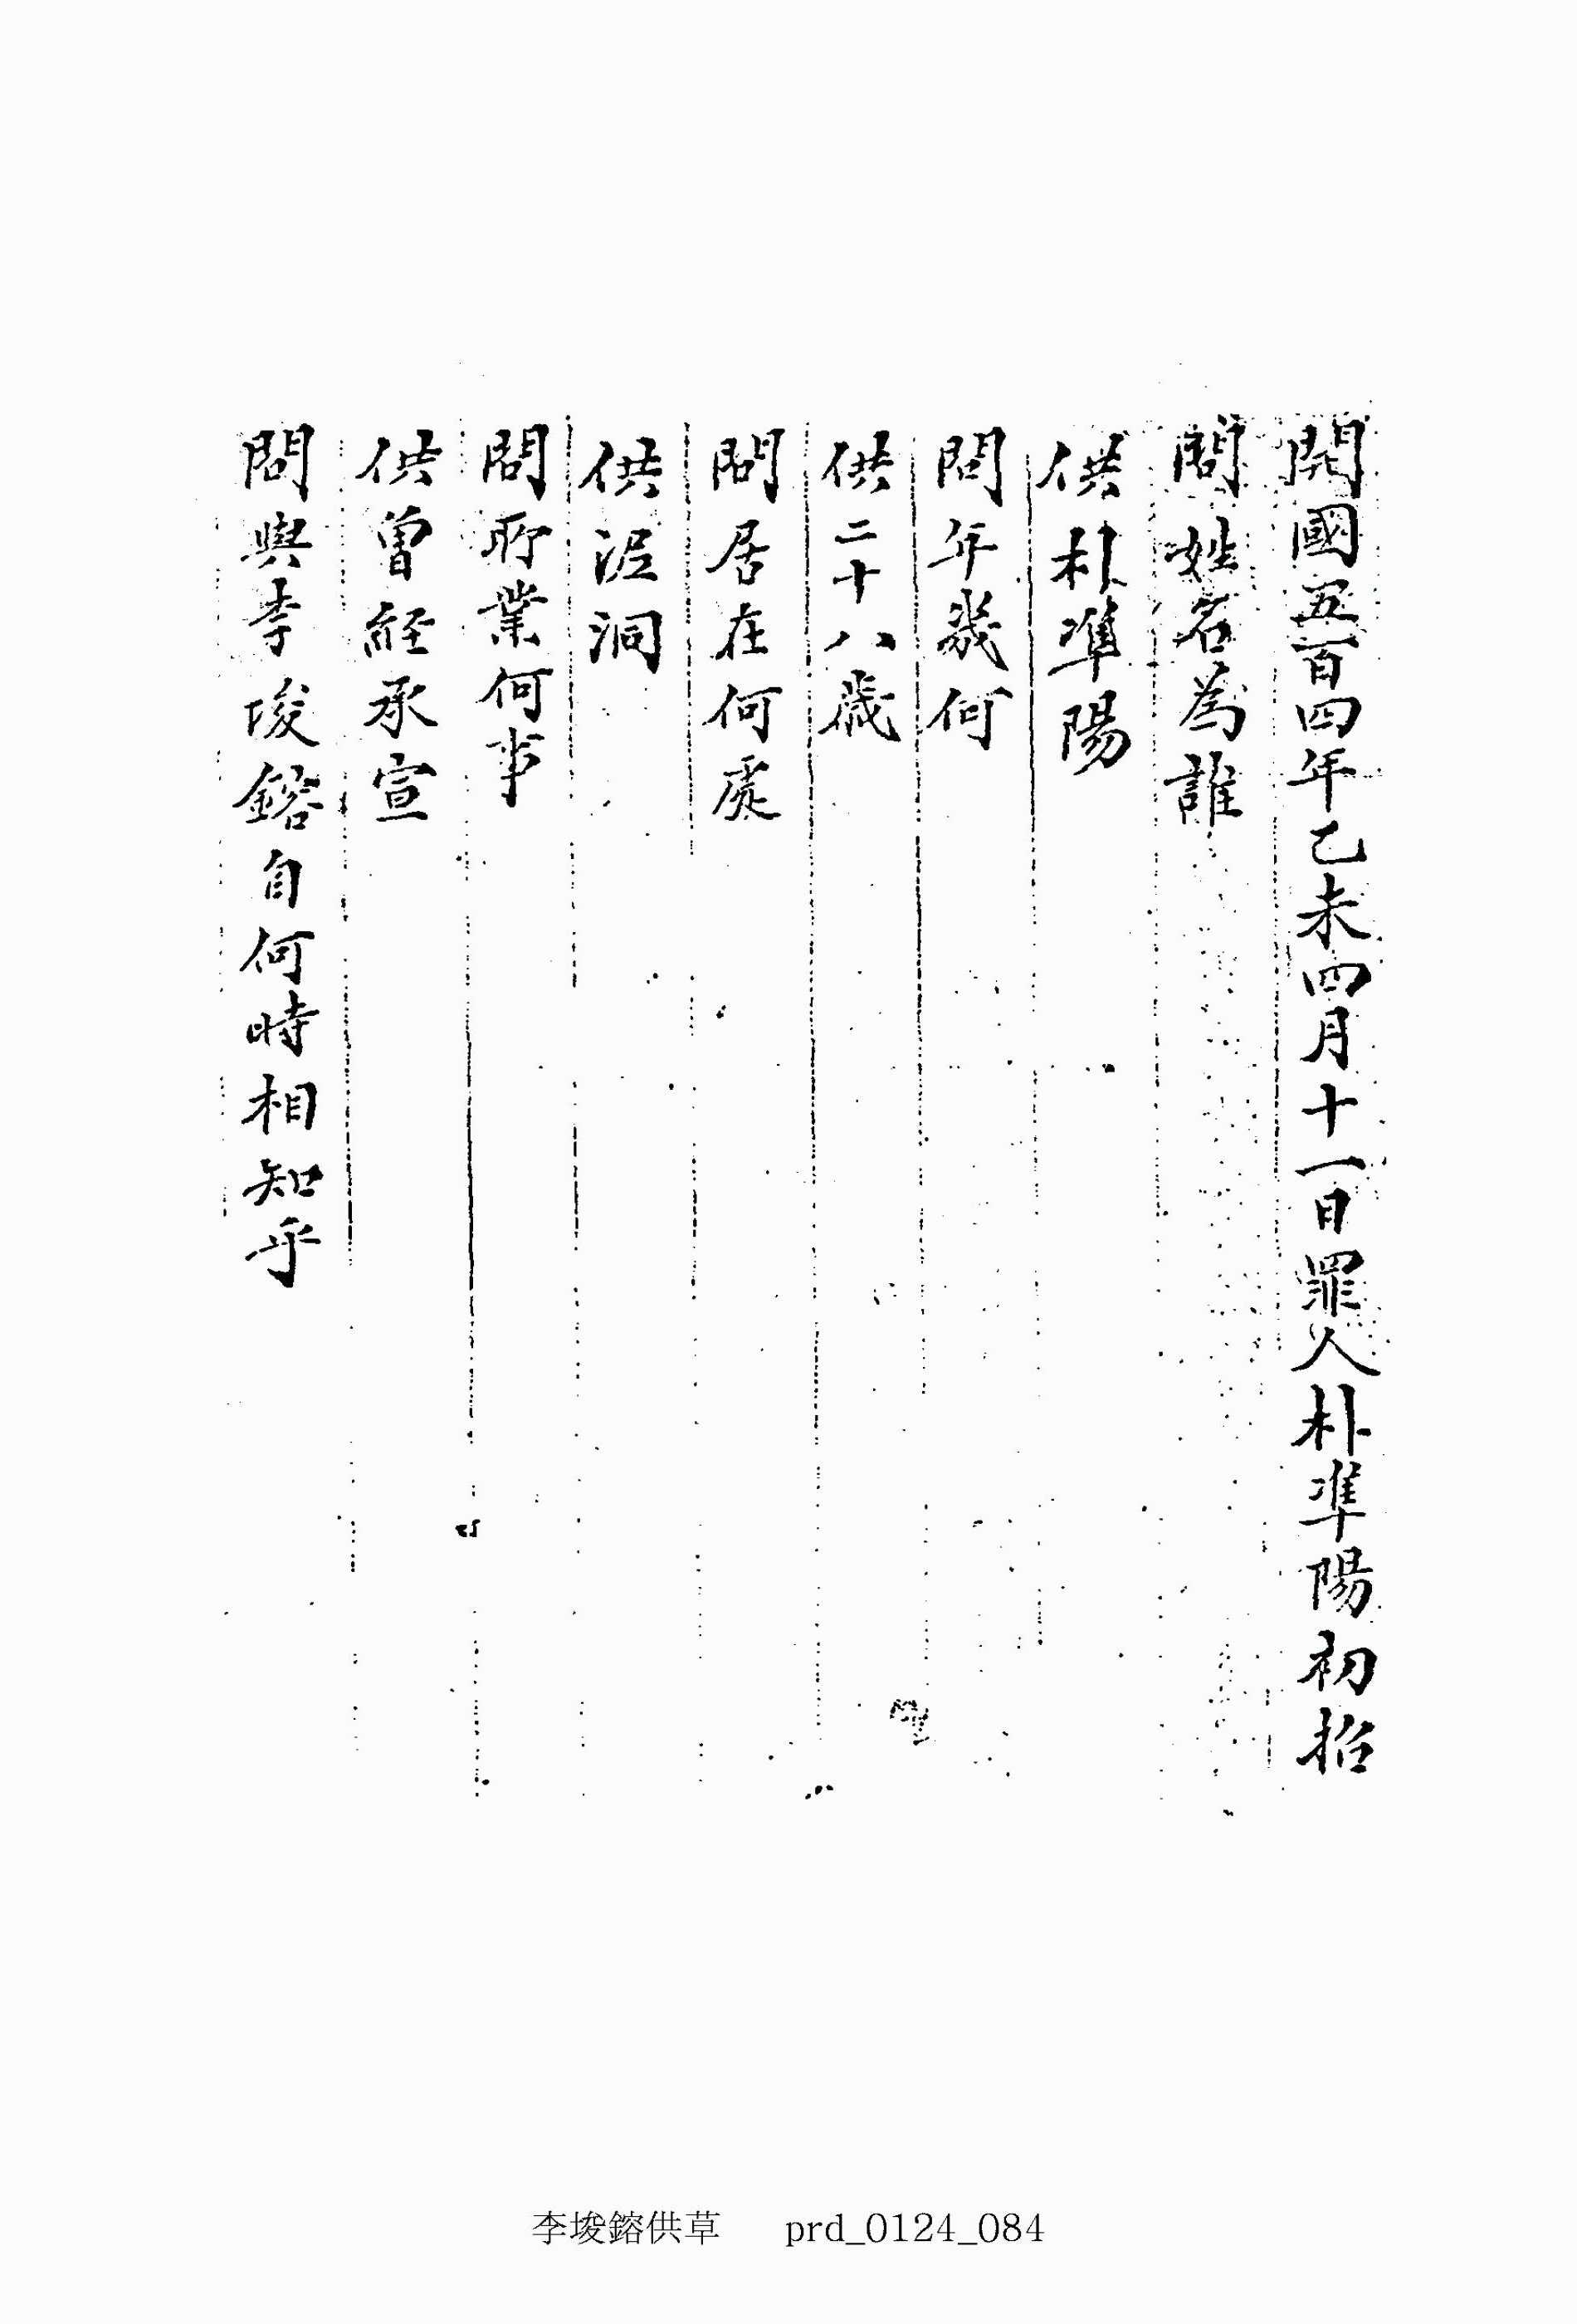 開國五百四年乙未四月十一日罪人朴準陽初招
問姓名為誰
供朴準陽
問年幾何
供二十八歲
問居在何處
供泥洞
問所業何事
供曾經承宣
問與李埈鎔自何時相知乎
李埈鎔供草 prd_0124_084